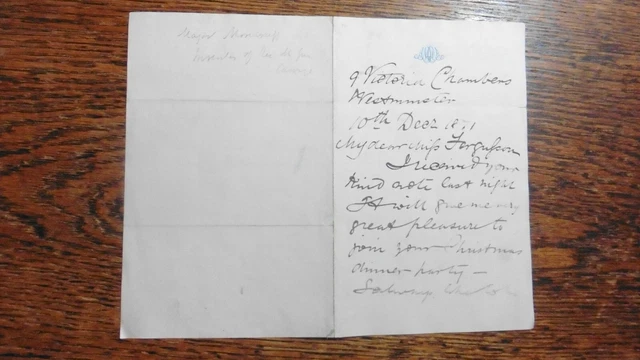 Major
Inventor of
9 Victoria Chambers
Westminster
10th Decr 1871
My dear Miss Fergusson
I received your
kind note last night
It will give me very
great pleasure to
join your Christmas
dinner party –